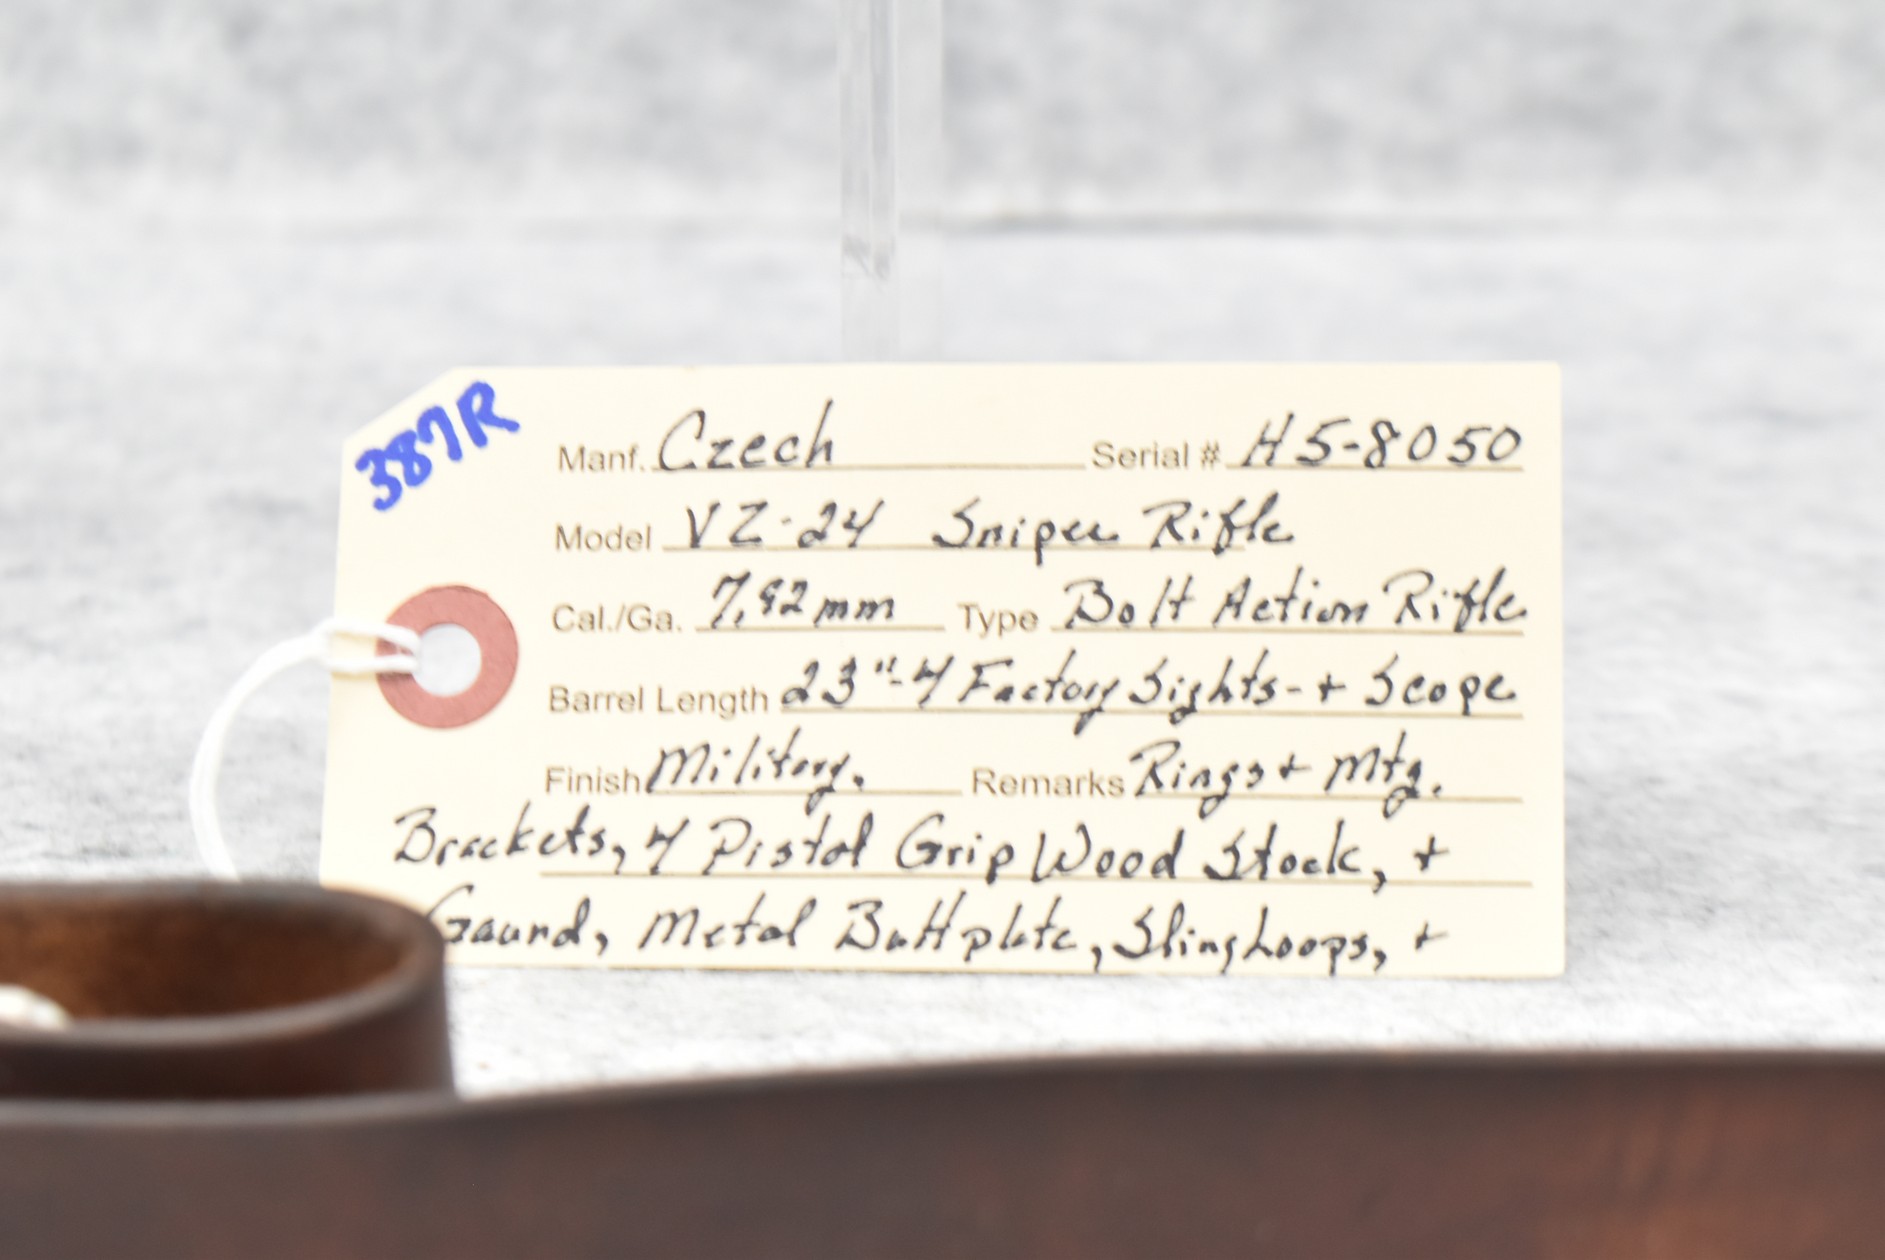 387R
Manf. Czech Serial # H5-8050
Model VZ-24 Sniper Rifle
Cal./Ga. 7,92mm Type Bolt Action Rifle
Barrel Length 23"-4 Factory Sights-+ Scope
Finish Military. Remarks Rings + Mtg.
Brackets, 4 Pistol Grip Wood Stock, +
Gaurd, Metal Buttplate, Sling Loops, +